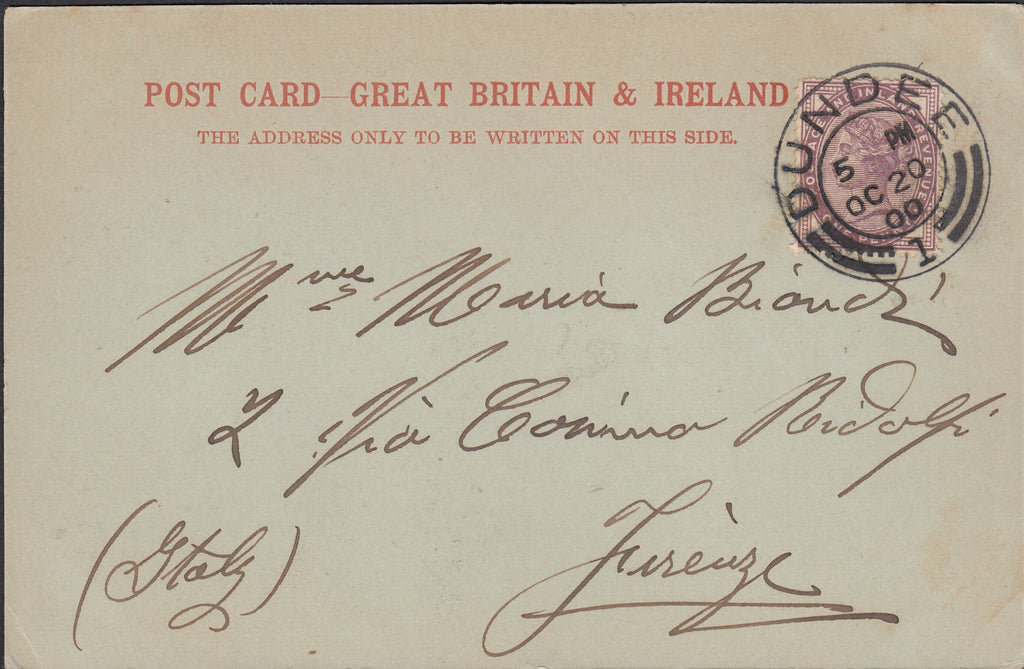 POST CARD—GREAT BRITAIN & IRELAND
THE ADDRESS ONLY TO BE WRITTEN ON THIS SIDE.
DUNDEE
5 PM
OC 20
00
1
REVENUE
Mme Maria Bianchi
2 Via Cosimo Ridolfi
Firenze
(Italy)